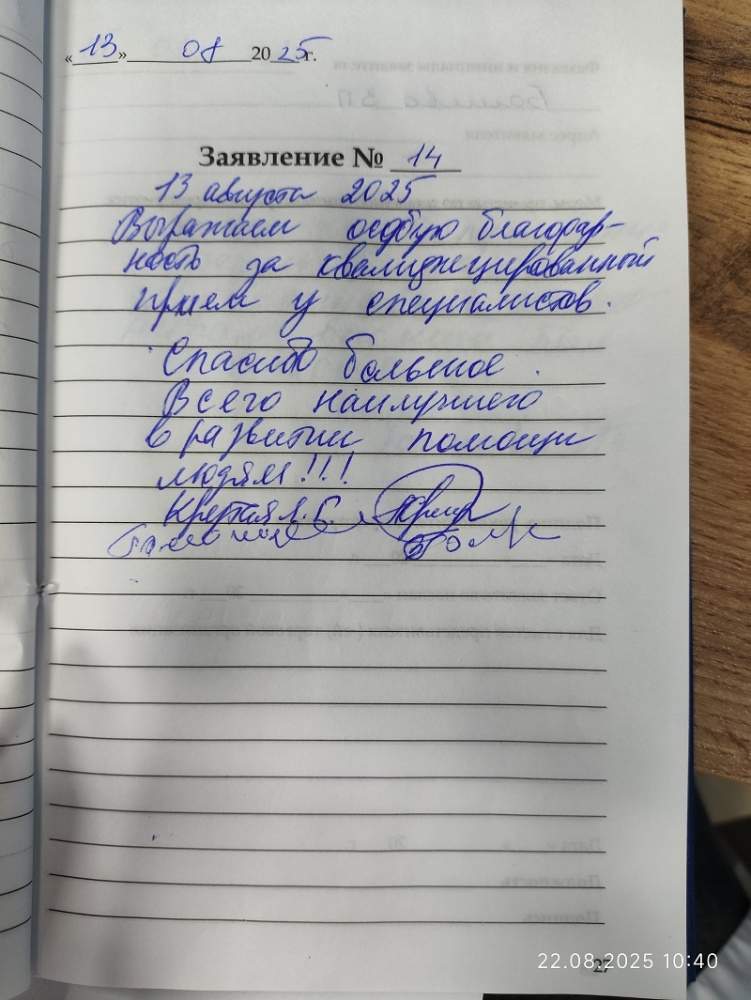 «13» 08 2025г.
Заявление № 14
13 августа 2025
Выражаем особую благодар-
ность за квалифицированный
прием у специалистов.
Спасибо большое.
Всего наилучшего
в развитии помощи
людям!!!
22.08.2025 10:40
27